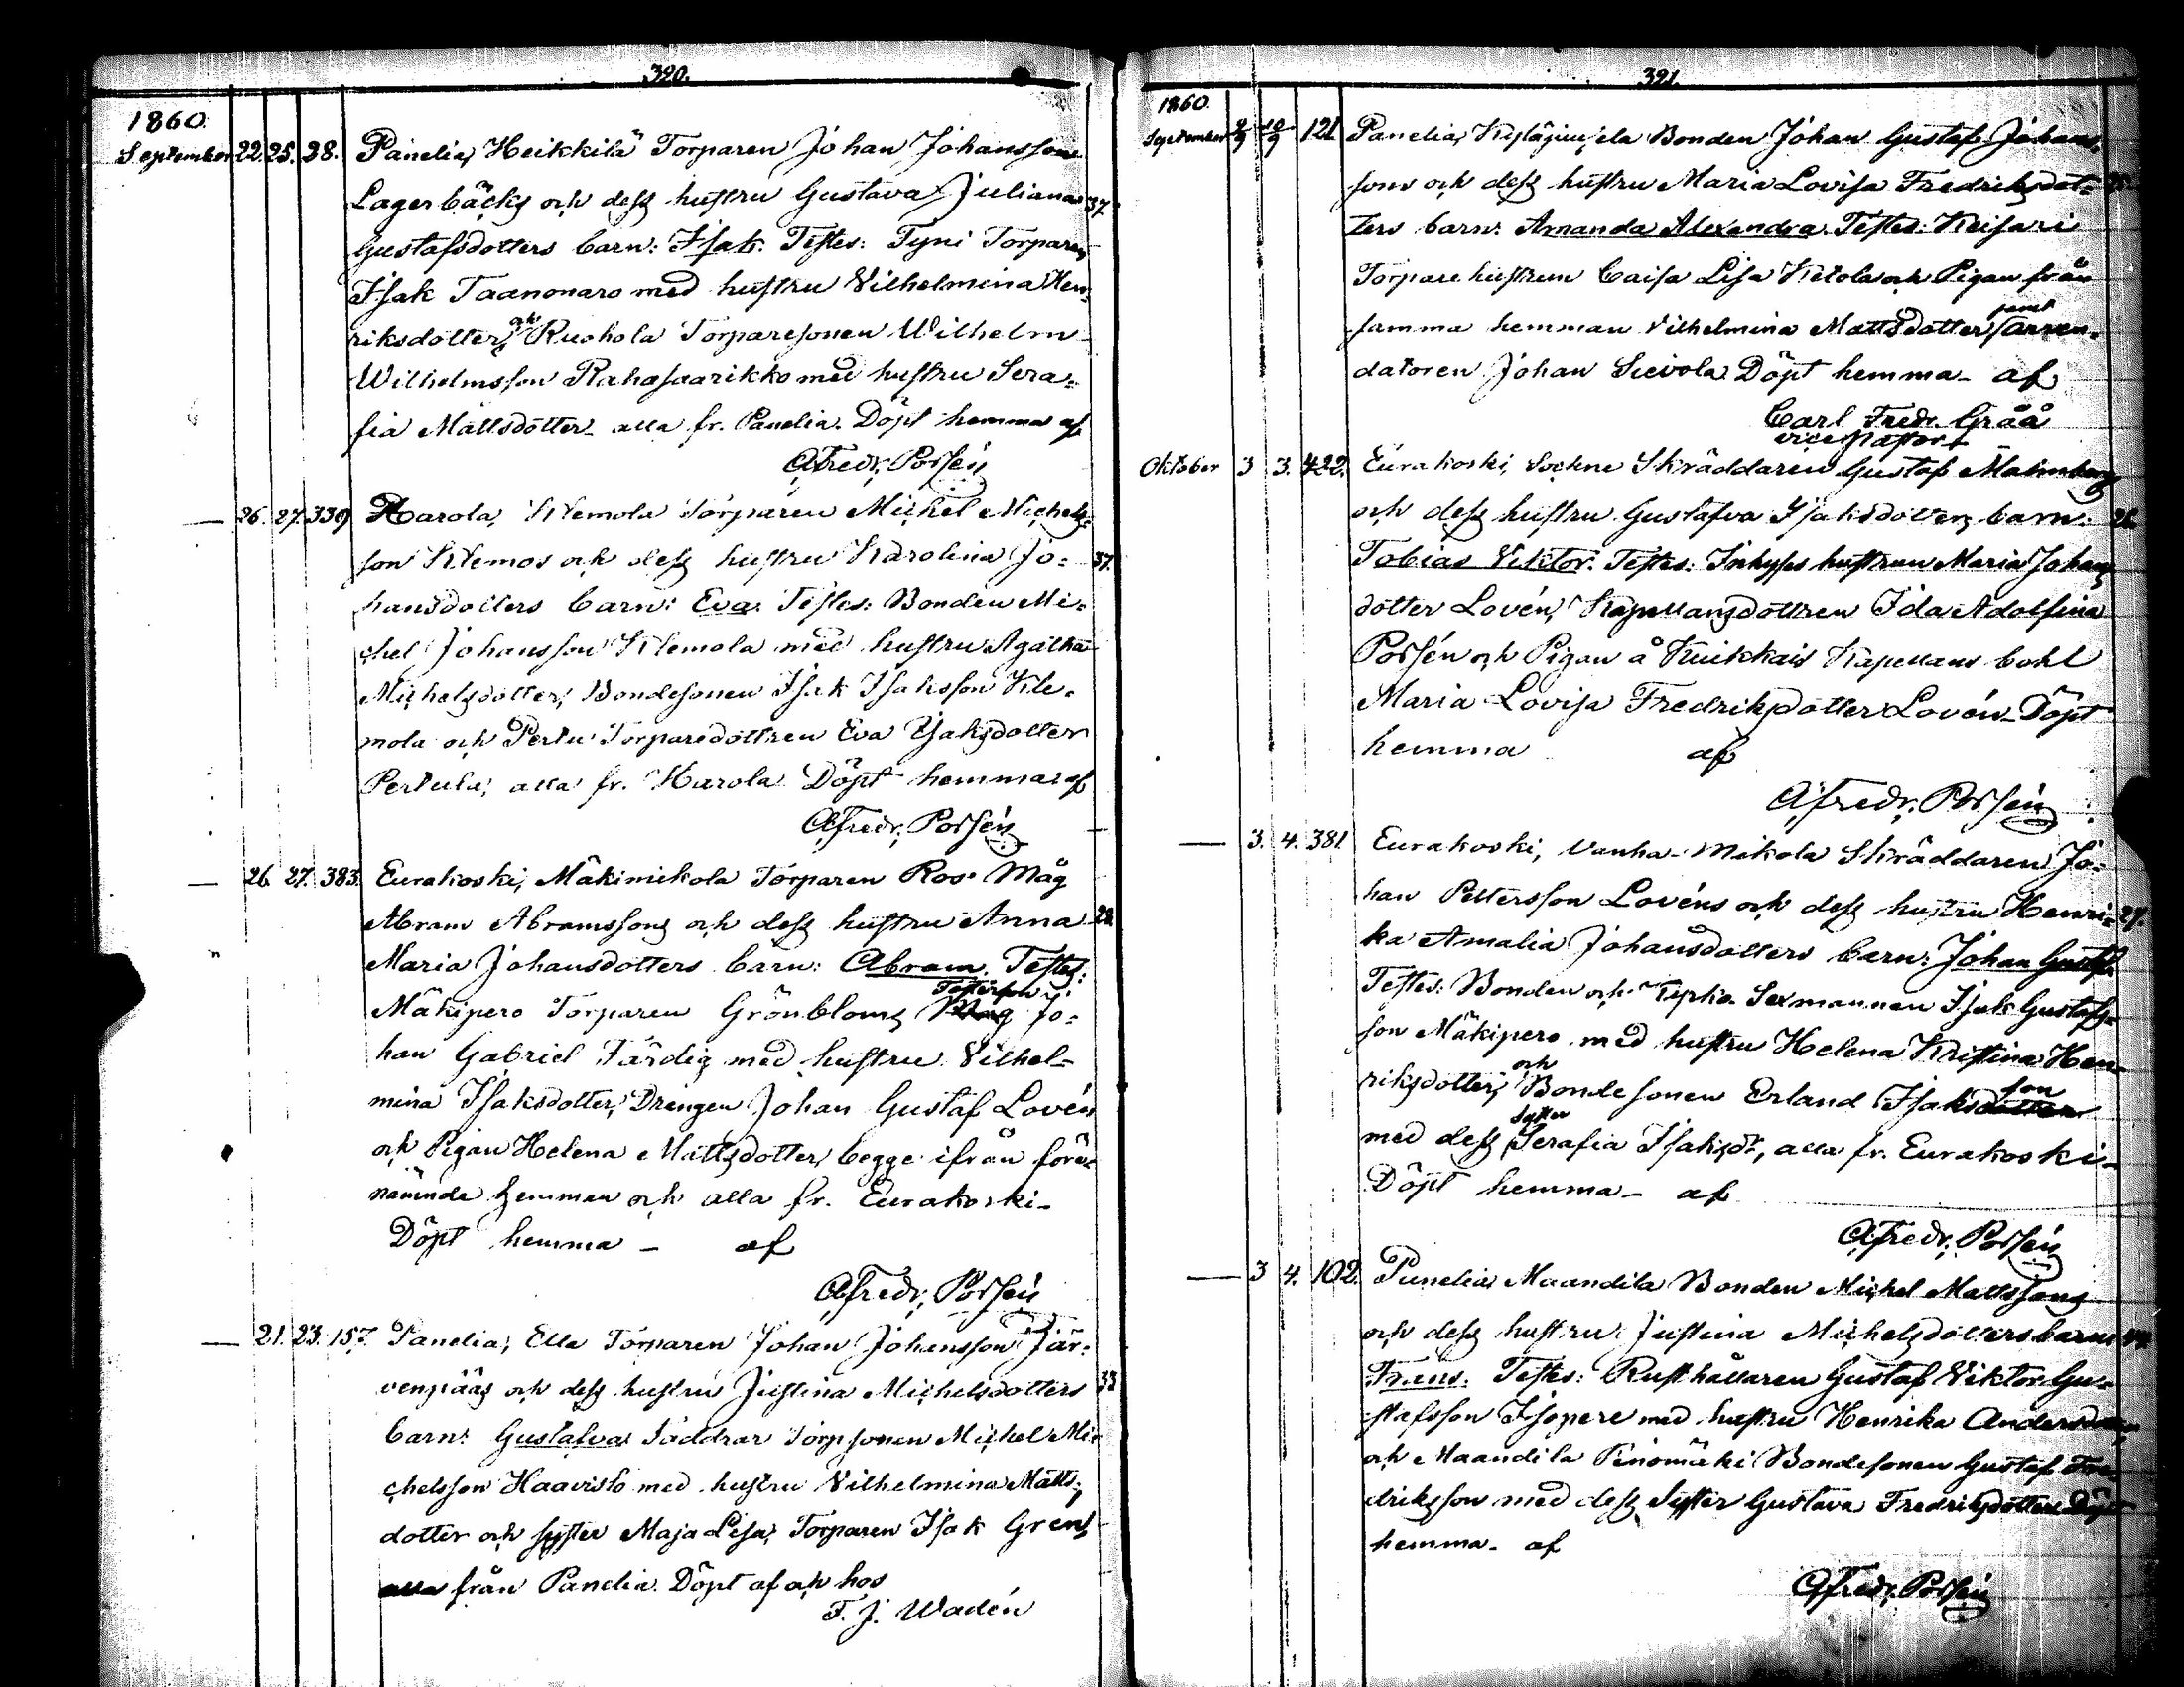 320.
1860.
September 22. 25. 38. Panelia, Heikkilä Torparen Johan Johansson
Lagerbäcks och dess hustru Gustava Juliana 37.
Gustafsdotters barn: Isak. Testes: Tyni Torparen
Isak Taanonaro med hustru Vilhelmina Hen-
riksdotter, och Ruohola Torparesonen Wilhelm
Wilhelmsson Rahasaarikko med hustru Sera-
fia Mattsdotter alla fr. Panelia. Döpt hemma af
AFredr. Porsén
— 26. 27. 339 Harola, Klemola Torparen Michel Michels-
son Klemos och dess hustru Karolina Jo- 37.
hansdotters barn: Eva. Testes: Bonden Mi-
chel Johansson Klemola med hustru Agatha
Michelsdotter, Bondesonen Isak Isaksson Kle-
mola och Perlu Torparedottren Eva Isaksdotter
alla fr. Harola Döpt hemma af
AFredr. Porsén
— 26. 27. 383. Eurakoski, Mäkinikola Torparen Ros Måg
Abram Abramssons och dess hustru Anna 28.
Maria Johansdotters barn: Abram. Testes:
Mäkipero Torparen Grönbloms Måg Jo-
han Gabriel Färdig med hustru Vilhel-
mina Isaksdotter, Drengen Johan Gustaf Lovén
och Pigan Helena Mattsdotter, begge ifrån före-
nämnde hemman och alla fr. Eurakoski-
Döpt hemma — af
AFredr. Porsén
— 21. 23. 157. Panelia, Ella Torparen Johan Johansson Jär-
venpääs och dess hustru Justina Michelsdotters 33
barn: Gustafva Faddrar Torpsonen Michel Mi-
chelsson Haavisto med hustru Vilhelmina Matts-
dotter och syster Maja Lisa, Torparen Isak Grens
alla från Panelia. Döpt af och hos
F. J. Wadén
321.
1860.
September 8/9 10/9 121 Panelia, Bonden Johan Gustaf Johans-
sons och dess hustru Maria Lovisa Fredriksdot-
ters barn: Amanda Alexandra. Testes: Keisari
Torpare hustrun Caisa Lisa Ketola och Pigan från
samma hemman Vilhelmina Mattsdotter samt arren-
datoren Johan Sievola Döpt hemma — af
Carl Fredr. Gråå
vice pastor
Oktober 3 3. 422. Eurakoski, Sockne Skräddaren Gustaf Malmberg
och dess hustru Gustafva Isaksdotters barn: 26
Tobias Viktor. Testes: Inhyses hustrun Maria Johans-
dotter Lovén, Kapellansdottren Ida Adolfina
Porsén och Pigan å Kuikkais Kapellans bohl
Maria Lovisa Fredriksdotter Lovén. Döpt
hemma af
AFredr. Porsén
— 3. 4. 381 Eurakoski, Vanha-Mikola Skräddaren Jo-
han Pettersson Lovéns och dess hustru Henri- 27.
ka Amalia Johansdotters barn: Johan Gustaf.
Testes: Bonden och Kyrko Sexmannen Isak Gustafs-
son Mäkipero med hustru Helena Kristina Hen-
riksdotter, och Bondesonen Erland Isaksson
med dess Syster Serafia Isaksdr, alla fr. Eurakoski —
Döpt hemma — af
AFredr. Porsén
— 3 4. 102. Panelia, Maandila Bonden Michel Mattssons
och dess hustru Justina Michelsdotters barn:
Frans. Testes: Rusthållaren Gustaf Viktor Gu-
stafsson Isopere med hustru Henrika Andersdotter
och Maandila Pinomäki Bondesonen Gustaf Fre-
driksson med dess Syster Gustava Fredriksdotter Döpt
hemma — af
AFredr. Porsén